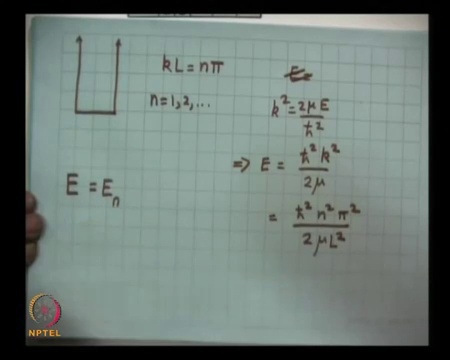 kL = nπ
n=1,2,...
E=
k² = 2μE/ħ²
⇒ E = ħ²k²/2μ
= ħ²n²π²/2μL²
E = Eₙ
NPTEL